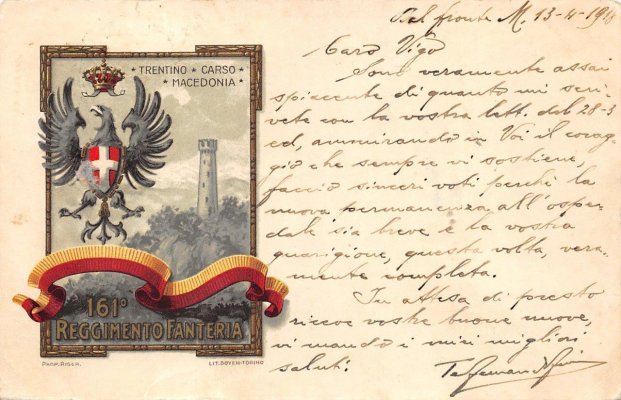 Dal fronte M. 13-4-1918
Caro Vigo
Sono veramente assai
spiacente di quanto mi scri-
vete con la vostra lett. del 28-3
ed, ammirando in Voi il corag-
gio che sempre vi sostiene,
faccio sinceri voti perchè la
nuova permanenza all'ospe-
dale sia breve e la vostra
guarigione, questa volta, vera-
mente completa.
In attesa di presto
ricever vostre buone nuove,
vi mando i miei migliori
saluti.
* TRENTINO * CARSO *
* MACEDONIA *
161º
REGGIMENTO FANTERIA
PROP. RISER.
LIT. DOYEN-TORINO